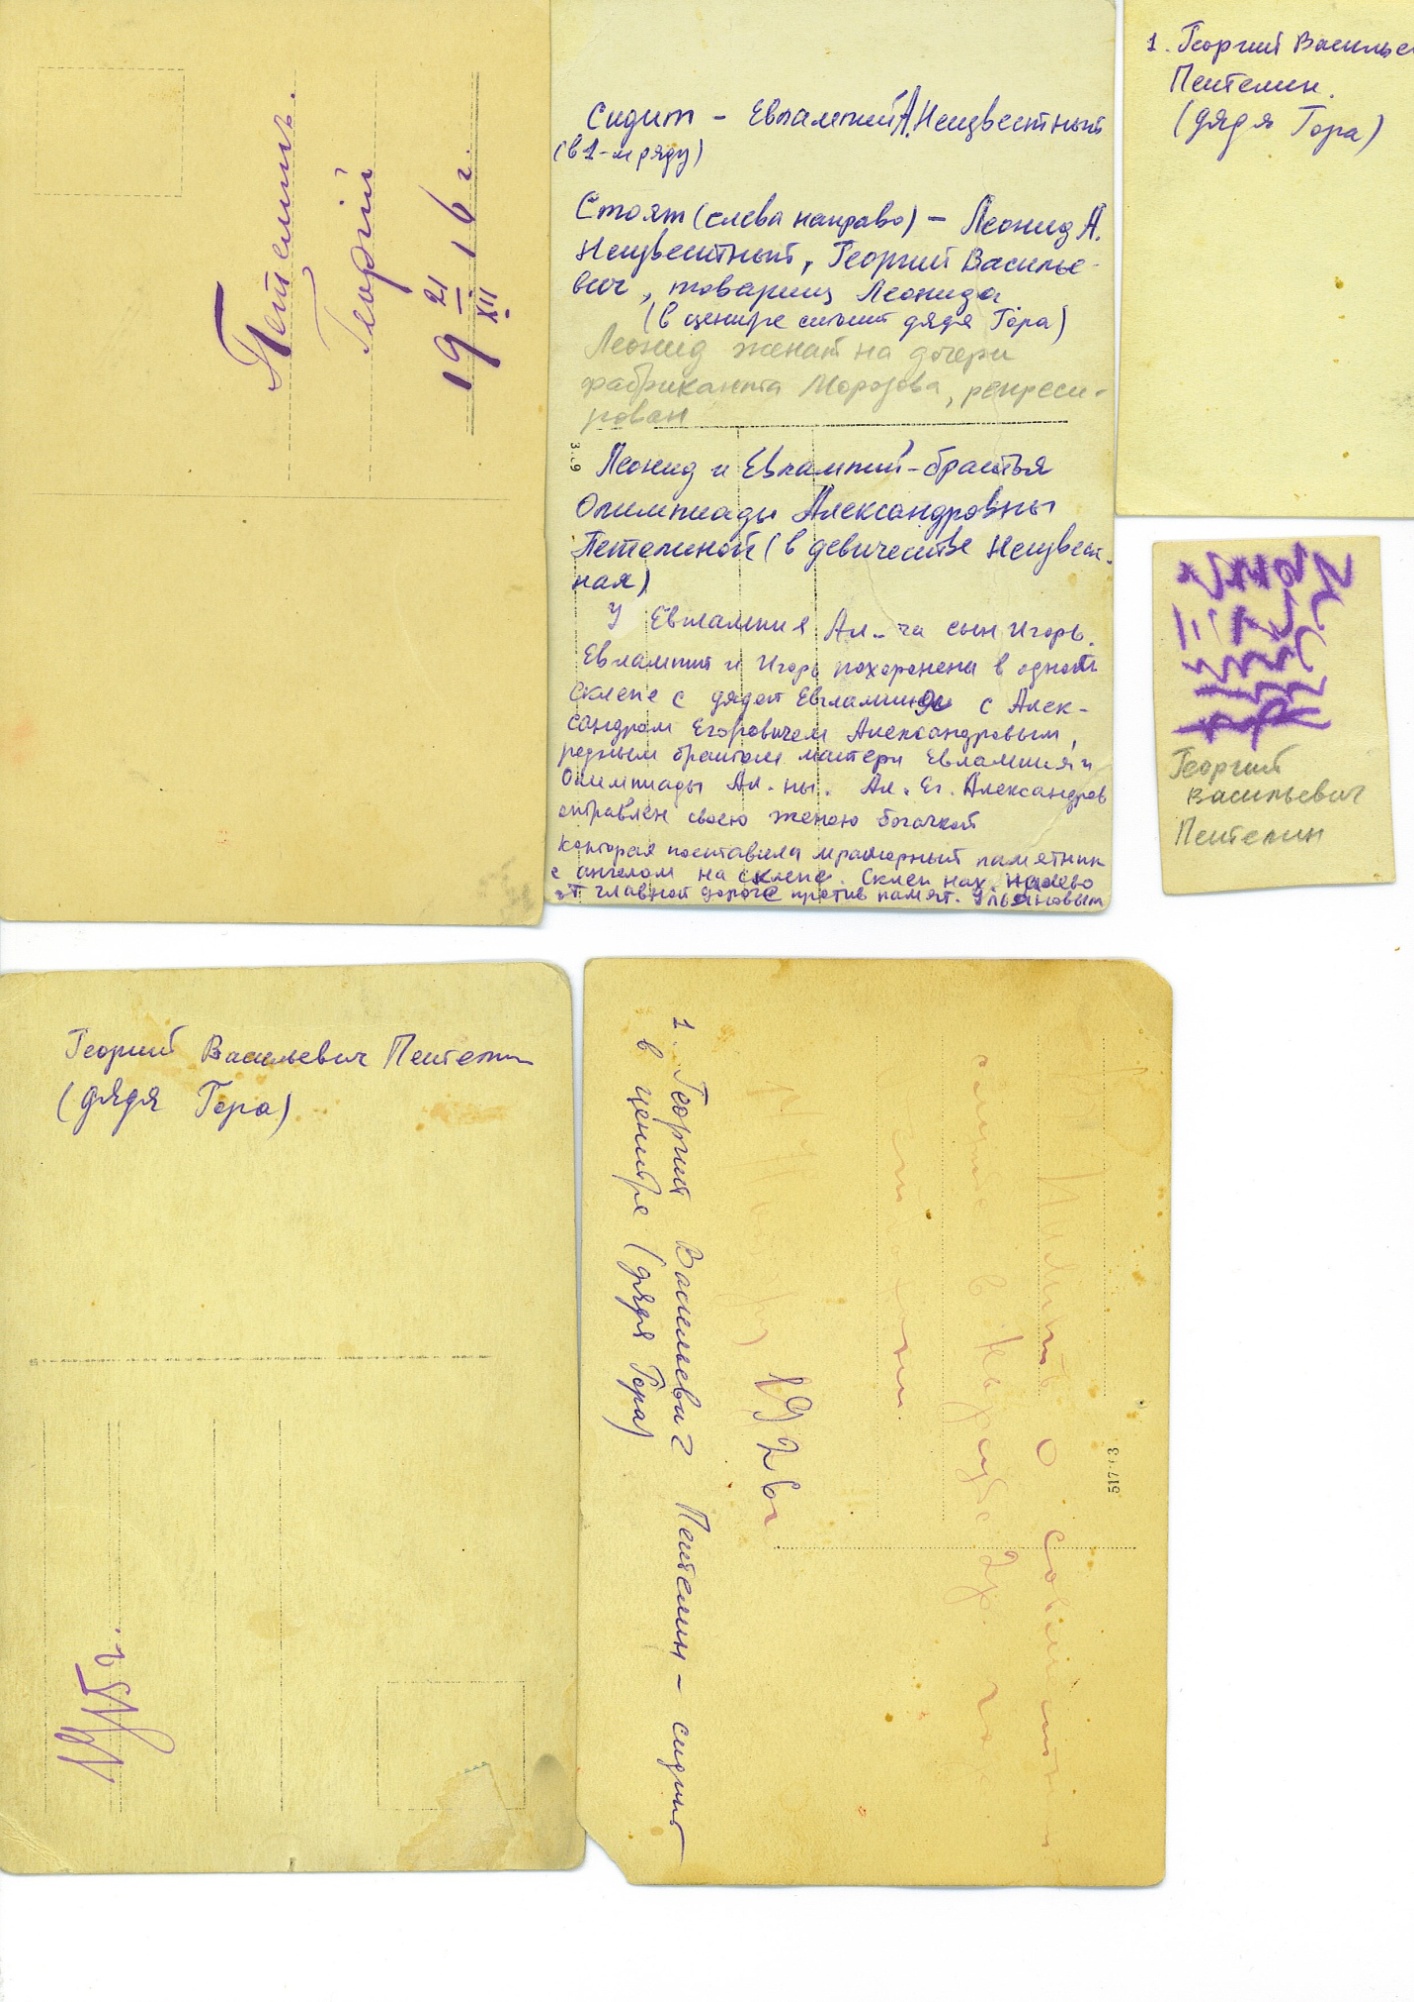 Петелинъ.
Георгій
19 21/XII 16 г.
Сидит - Евлампий А. Неизвестный
(в 1-м ряду)
Стоят (слева направо) - Леонид А.
Неизвестный, Георгий Василье-
вич, товарищ Леонида
(в центре стоит дядя Гора)
Леонид женат на дочери
фабриканта Морозова, репресси-
рован
Леонид и Евлампий - братья
Олимпиады Александровны
Петелиной (в девичестве Неизвест-
ная)
У Евлампия Ал-ча сын Игорь.
Евлампий и Игорь похоронены в одном
склепе с дядей Евлампия с Алек-
сандром Егоровичем Александровым,
родным братом матери Евлампия и
Олимпиады Ал-ны. Ал. Ег. Александров
отравлен своею женою богачкой
которая поставила мраморный памятник
с ангелом на склепе. Склеп нах. налево
от главной дороге против памят. Ульяновым
1. Георгий Василье
Петелин.
(дядя Гора)
Георгий
Васильевич
Петелин
Георгий Васильевич Петелин
(дядя Гора)
1915 г.
1. Георгий Васильевич Петелин - сидит
в центре (дядя Гора)
О
службе в
1926 г
51713